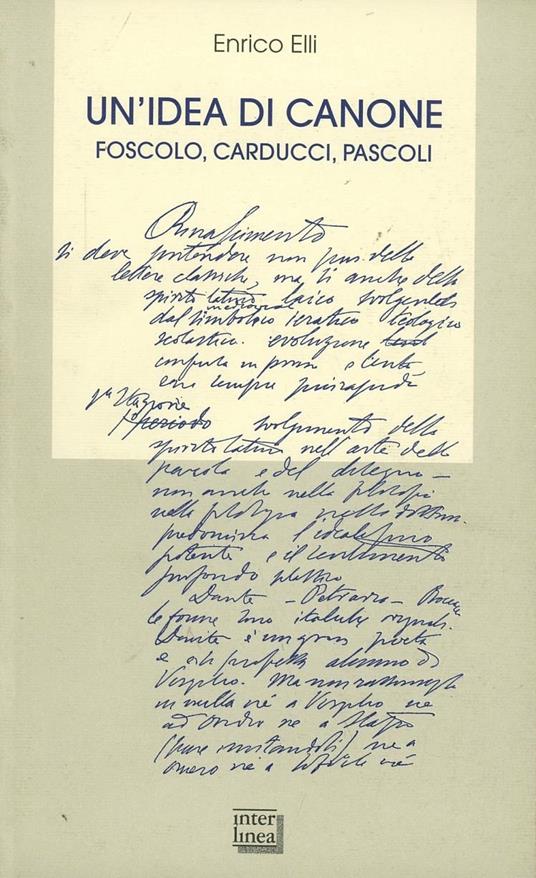 Enrico Elli
UN'IDEA DI CANONE
FOSCOLO, CARDUCCI, PASCOLI
Rinascimento
si deve intendere non pur delle
lettere classiche, ma sì anche dello
spirito latino laico svolgentesi
medioevale
dal simbolico ieratico teologico
scolastico. evoluzione
compiuta in prosa e
con sempre
periodo svolgimento dello
spirito latino nell'arte della
parola e del disegno –
non anche nella filosofia
nella
predomina l'ideale
potente e il sentimento
profondo
Dante – Petrarca –
le forme sono italiche
Dante è un gran poeta
e alunno di
Virgilio. Ma non
in nulla né a Virgilio né
ad Ovidio né a Stazio
(pure imitandoli) né a
Omero né a
inter
linea